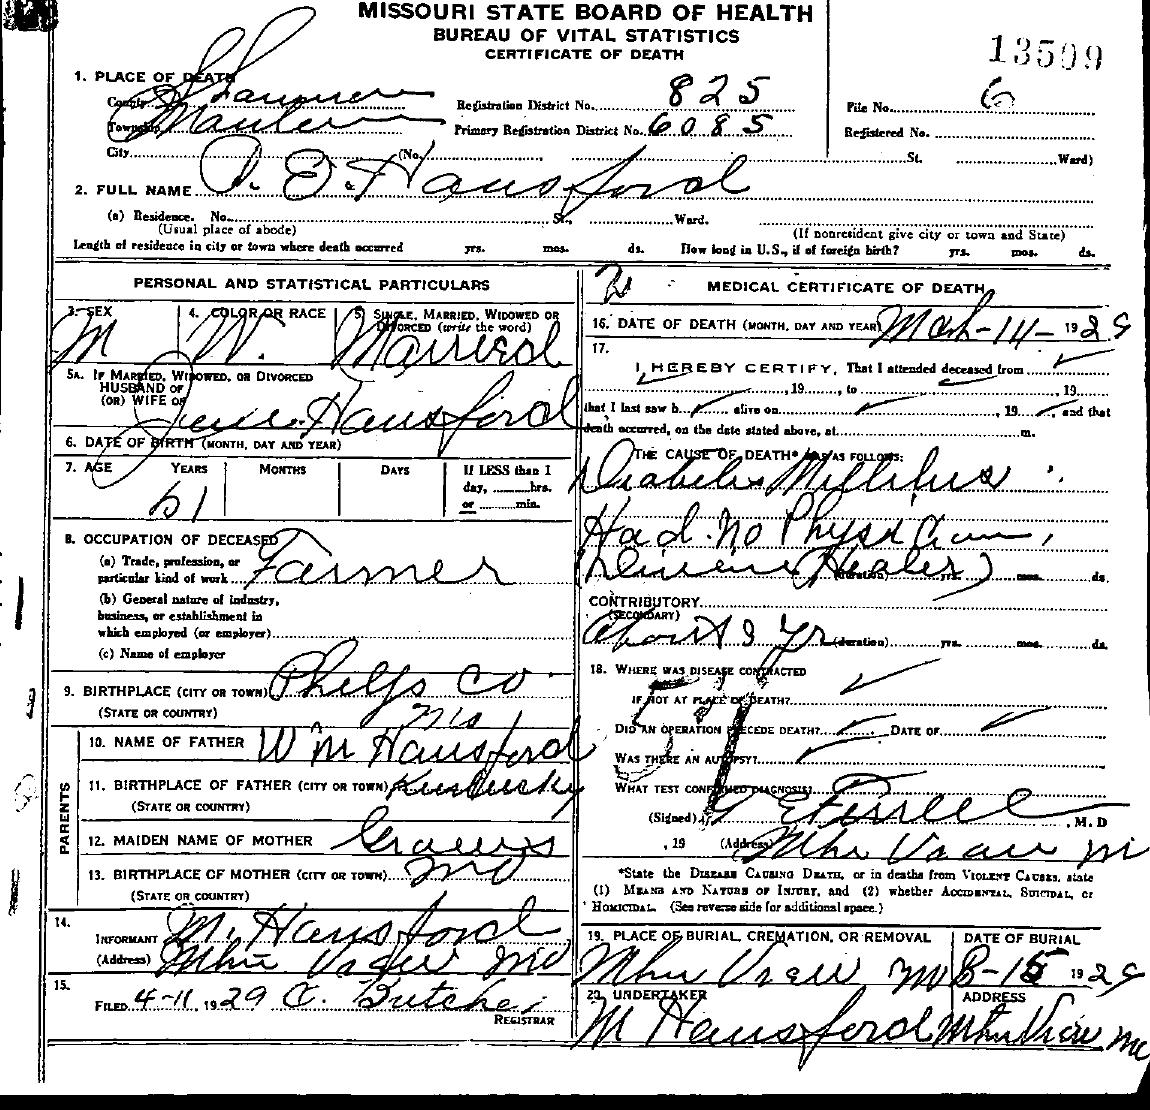 MISSOURI STATE BOARD OF HEALTH
BUREAU OF VITAL STATISTICS
CERTIFICATE OF DEATH
13509
1. PLACE OF DEATH
County Shannon
Township
Registration District No. 825
File No. 6
Primary Registration District No. 6085
Registered No.
City (No. St. Ward)
2. FULL NAME E. Hansford
(a) Residence. No. St., Ward.
(Usual place of abode) (If nonresident give city or town and State)
Length of residence in city or town where death occurred yrs. mos. ds. How long in U.S., if of foreign birth? yrs. mos. ds.
PERSONAL AND STATISTICAL PARTICULARS
3. SEX 4. COLOR OR RACE 5. SINGLE, MARRIED, WIDOWED OR
DIVORCED (write the word)
M W. Married
5A. IF MARRIED, WIDOWED, OR DIVORCED
HUSBAND OF
(OR) WIFE OF Hansford
6. DATE OF BIRTH (MONTH, DAY AND YEAR)
7. AGE YEARS MONTHS DAYS If LESS than 1
day, hrs.
or min.
51
8. OCCUPATION OF DECEASED
(a) Trade, profession, or
particular kind of work Farmer
(b) General nature of industry,
business, or establishment in
which employed (or employer)
(c) Name of employer
9. BIRTHPLACE (CITY OR TOWN) Phelps Co
(STATE OR COUNTRY) Mo
PARENTS
10. NAME OF FATHER Wm Hansford
11. BIRTHPLACE OF FATHER (CITY OR TOWN) Kentucky
(STATE OR COUNTRY)
12. MAIDEN NAME OF MOTHER
13. BIRTHPLACE OF MOTHER (CITY OR TOWN) Mo
(STATE OR COUNTRY)
14.
INFORMANT M. Hansford
(Address) Mtn View Mo
15.
FILED 4-11, 1929 C. Butcher
REGISTRAR
MEDICAL CERTIFICATE OF DEATH
16. DATE OF DEATH (MONTH, DAY AND YEAR) Mch-14- 1929
17.
I HEREBY CERTIFY, That I attended deceased from
, 19 , to , 19
that I last saw h alive on , 19 , and that
death occurred, on the date stated above, at m.
THE CAUSE OF DEATH* WAS AS FOLLOWS:
Diabetes Mellitus
Had no Physician,
(Divine Healer)
(duration) yrs. mos. ds.
CONTRIBUTORY
(SECONDARY)
About 3 yr (duration) yrs. mos. ds.
18. WHERE WAS DISEASE CONTRACTED
IF NOT AT PLACE OF DEATH?
57
DID AN OPERATION PRECEDE DEATH? DATE OF
WAS THERE AN AUTOPSY?
WHAT TEST CONFIRMED DIAGNOSIS?
(Signed) , M. D
, 19 (Address) Mtn View M
*State the DISEASE CAUSING DEATH, or in deaths from VIOLENT CAUSES, state
(1) MEANS AND NATURE OF INJURY, and (2) whether ACCIDENTAL, SUICIDAL, or
HOMICIDAL. (See reverse side for additional space.)
19. PLACE OF BURIAL, CREMATION, OR REMOVAL DATE OF BURIAL
Mtn View Mo 3-15 1929
20. UNDERTAKER ADDRESS
M Hansford Mtn View Mo